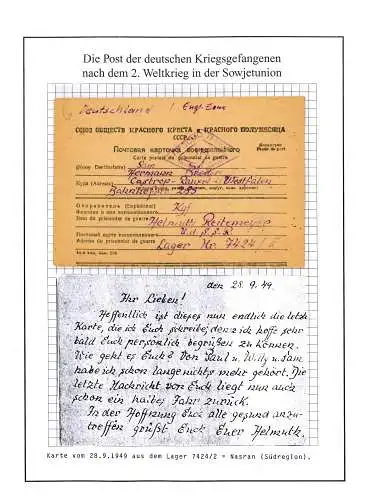 Die Post der deutschen Kriegsgefangenen
nach dem 2. Weltkrieg in der Sowjetunion
Deutschland / Engl. Zone
СОЮЗ ОБЩЕСТВ КРАСНОГО КРЕСТА и КРАСНОГО ПОЛУМЕСЯЦА
СССР
Почтовая карточка военнопленного
Carte postale du prisonnier de guerre
Кому (Destinataire)
Hermann
Куда (Adresse) Castrop-Rauxel - Westfalen
Bahnhofstr. 293
Отправитель (Expéditeur) Kgf
Фамилия и имя военнопленного
Nom du prisonnier de guerre Helmuth Reitemeyer
Почтовый адрес военнопленного
Adresse du prisonnier de guerre Lager Nr. 7424/
den 28.9.49.
Ihr Lieben!
Hoffentlich ist dieses nun endlich die letzte
Karte, die ich Euch schreibe, denn ich hoffe sehr
bald Euch persönlich begrüßen zu können.
Wie geht es Euch? Von Paul u. Willy u. Fam.
habe ich schon lange nichts mehr gehört. Die
letzte Nachricht von Euch liegt nun auch
schon ein halbes Jahr zurück.
In der Hoffnung Euch alle gesund anzu-
treffen grüßt Euch Euer Helmuth.
Karte vom 28.9.1949 aus dem Lager 7424/2 = Nasran (Südregion).